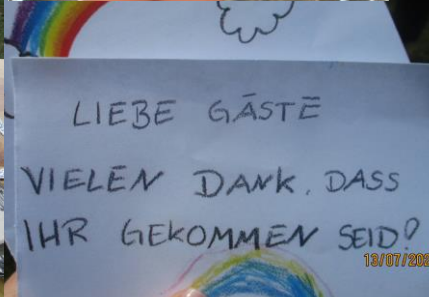 LIEBE GÄSTE
VIELEN DANK, DASS
IHR GEKOMMEN SEID!